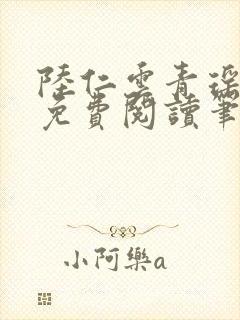 陸仁雲青瑶
免費閱讀筆
小阿樂a